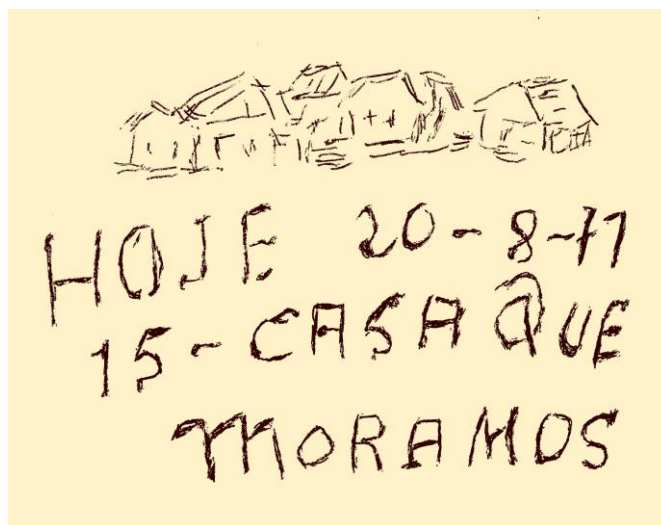 HOJE 20-8-71
15-CASA QUE
MORAMOS